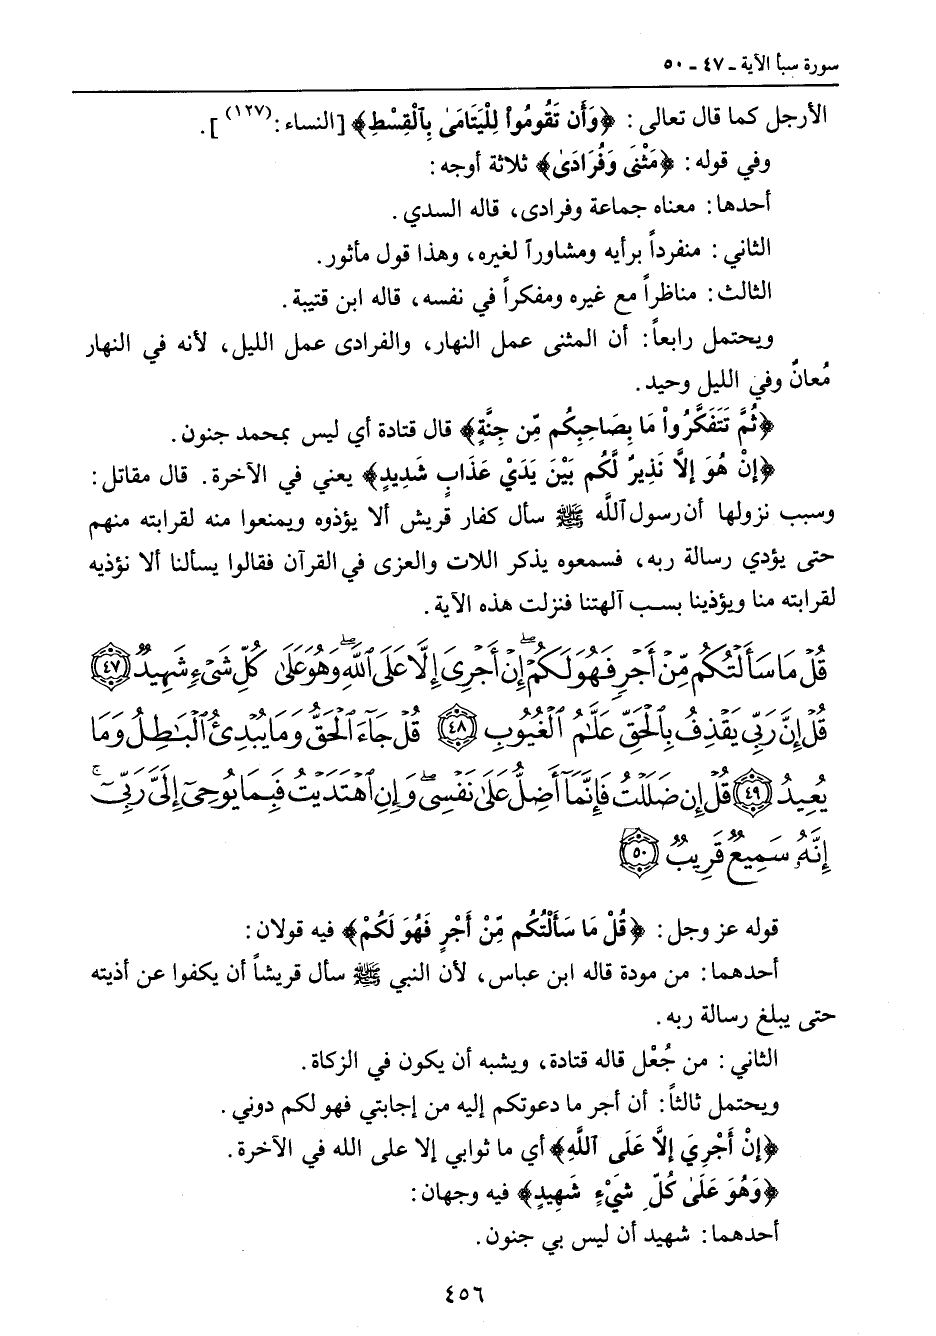 سورة سبأ الآية ـ ٤٧ ـ ٥٠
الأرجل كما قال تعالى: ﴿وَأَن تَقُومُواْ لِلْيَتَامَىٰ بِٱلْقِسْطِ﴾ [النساء: (١٢٧)].
وفي قوله: ﴿مَثْنَىٰ وَفُرَادَىٰ﴾ ثلاثة أوجه:
أحدها: معناه جماعة وفرادى، قاله السدي.
الثاني: منفرداً برأيه ومشاوراً لغيره، وهذا قول مأثور.
الثالث: مناظراً مع غيره ومفكراً في نفسه، قاله ابن قتيبة.
ويحتمل رابعاً: أن المثنى عمل النهار، والفرادى عمل الليل، لأنه في النهار
مُعانٌ وفي الليل وحيد.
﴿ثُمَّ تَتَفَكَّرُواْ مَا بِصَاحِبِكُم مِّن جِنَّةٍ﴾ قال قتادة أي ليس بمحمد جنون.
﴿إِنْ هُوَ إِلَّا نَذِيرٌ لَّكُم بَيْنَ يَدَيْ عَذَابٍ شَدِيدٍ﴾ يعني في الآخرة. قال مقاتل:
وسبب نزولها أن رسول ٱللَّه ﷺ سأل كفار قريش ألا يؤذوه ويمنعوا منه لقرابته منهم
حتى يؤدي رسالة ربه، فسمعوه يذكر اللات والعزى في القرآن فقالوا يسألنا ألا نؤذيه
لقرابته منا ويؤذينا بسب آلهتنا فنزلت هذه الآية.
قُلْ مَا سَأَلْتُكُم مِّنْ أَجْرٍ فَهُوَ لَكُمْ ۖ إِنْ أَجْرِىَ إِلَّا عَلَى ٱللَّهِ ۖ وَهُوَ عَلَىٰ كُلِّ شَىْءٍ شَهِيدٌ ٤٧
قُلْ إِنَّ رَبِّى يَقْذِفُ بِٱلْحَقِّ عَلَّٰمُ ٱلْغُيُوبِ ٤٨ قُلْ جَآءَ ٱلْحَقُّ وَمَا يُبْدِئُ ٱلْبَٰطِلُ وَمَا
يُعِيدُ ٤٩ قُلْ إِن ضَلَلْتُ فَإِنَّمَآ أَضِلُّ عَلَىٰ نَفْسِى ۖ وَإِنِ ٱهْتَدَيْتُ فَبِمَا يُوحِىٓ إِلَىَّ رَبِّىٓ ۚ
إِنَّهُۥ سَمِيعٌ قَرِيبٌ ٥٠
قوله عز وجل: ﴿قُلْ مَا سَأَلْتُكُم مِّنْ أَجْرٍ فَهُوَ لَكُمْ﴾ فيه قولان:
أحدهما: من مودة قاله ابن عباس، لأن النبي ﷺ سأل قريشاً أن يكفوا عن أذيته
حتى يبلغ رسالة ربه.
الثاني: من جُعْل قاله قتادة، ويشبه أن يكون في الزكاة.
ويحتمل ثالثاً: أن أجر ما دعوتكم إليه من إجابتي فهو لكم دوني.
﴿إِنْ أَجْرِيَ إِلَّا عَلَى ٱللَّهِ﴾ أي ما ثوابي إلا على الله في الآخرة.
﴿وَهُوَ عَلَىٰ كُلِّ شَيْءٍ شَهِيدٍ﴾ فيه وجهان:
أحدهما: شهيد أن ليس بي جنون.
٤٥٦